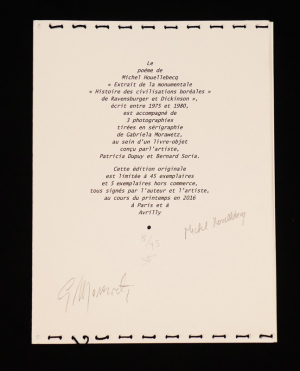 Le
poème de
Michel Houellebecq
« Extrait de la monumentale
« Histoire des civilisations boréales »
de Ravensburger et Dickinson »,
écrit entre 1975 et 1980,
est accompagné de
3 photographies
tirées en sérigraphie
de Gabriela Morawetz,
au sein d'un livre-objet
conçu par l'artiste,
Patricia Dupuy et Bernard Soria.
Cette édition originale
est limitée à 45 exemplaires
et 5 exemplaires hors commerce,
tous signés par l'auteur et l'artiste,
au cours du printemps en 2016
à Paris et à
Avrilly
Michel Houellebecq
G Morawetz